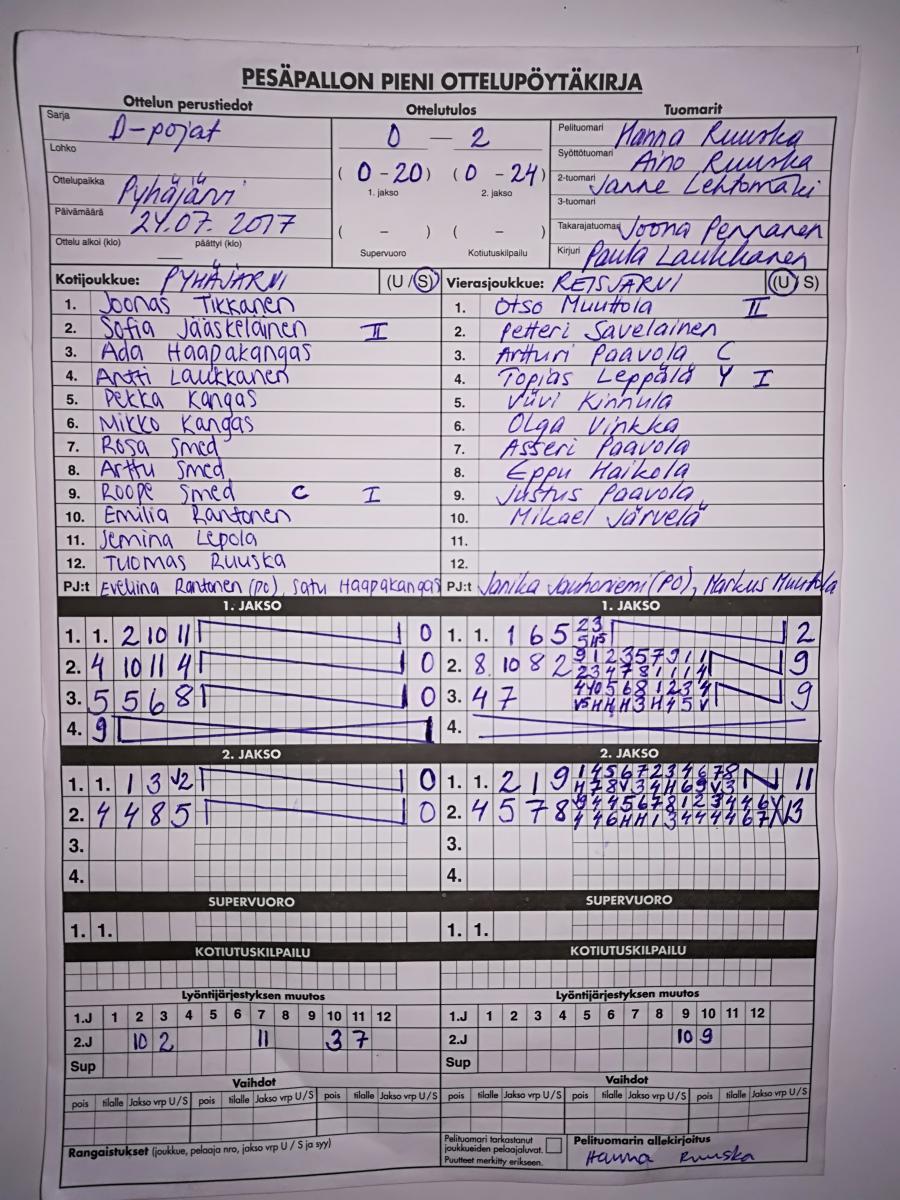 PESÄPALLON PIENI OTTELUPÖYTÄKIRJA
Ottelun perustiedot
Sarja D-pojat
Lohko
Ottelupaikka Pyhäjärvi
Päivämäärä 24.07. 2017
Ottelu alkoi (klo) päättyi (klo)
—
Ottelutulos
0 — 2
(0-20) (0-24)
1. jakso 2. jakso
( – ) ( – )
Supervuoro Kotiutuskilpailu
Tuomarit
Pelituomari Hanna Ruuska
Syöttötuomari Aino Ruuska
2-tuomari Janne Lehtomäki
3-tuomari
Takarajatuomari Joona Pennanen
Kirjuri Paula Laukkanen
Kotijoukkue: PYHÄJÄRVI (U/S)
1. Joonas Tikkanen
2. Sofia Jääskeläinen II
3. Ada Haapakangas
4. Antti Laukkanen
5. Pekka Kangas
6. Mikko Kangas
7. Rosa Smed
8. Arttu Smed
9. Roope Smed C I
10. Emilia Rantonen
11. Jemina Lepola
12. Tuomas Ruuska
PJ:t Eveliina Rantonen (PO), Satu Haapakangas
Vierasjoukkue: REISJÄRVI (U/S)
1. Otso Muuttola II
2. Petteri Savelainen
3. Artturi Paavola C
4. Topias Leppälä Y I
5. Viivi Kinnula
6. Olga Vinkka
7. Asseri Paavola
8. Eppu Haikola
9. Justus Paavola
10. Mikael Järvelä
11.
12.
PJ:t Janika Jauhoniemi (PO), Markus Muuttola
1. JAKSO
1. 1. 2 10 11 0
2. 4 10 11 4 0
3. 5 5 6 8 0
4. 9
1. JAKSO
1. 1. 1 6 5 2 3 2
2. 8 10 8 2 9 1 2 3 5 7 9 1 1 9
2 3 4 7 8 1 1 1 4
3. 4 7 4 4 10 5 6 8 1 2 3 4 9
V 5 H H H 3 H 4 5 V
4.
2. JAKSO
1. 1. 1 3 V2 0
2. 4 4 8 5 0
3.
4.
2. JAKSO
1. 1. 2 1 9 1 4 5 6 7 2 3 4 6 7 8 11
H 7 8 V 3 4 H 6 9 V 3
2. 4 5 7 8 V9 4 4 5 6 7 8 1 2 3 4 4 6 13
4 4 6 H H 1 3 4 4 4 4 6 7
3.
4.
SUPERVUORO
1. 1.
SUPERVUORO
1. 1.
KOTIUTUSKILPAILU
KOTIUTUSKILPAILU
Lyöntijärjestyksen muutos
1.J 1 2 3 4 5 6 7 8 9 10 11 12
2.J 10 2 11 3 7
Sup
Lyöntijärjestyksen muutos
1.J 1 2 3 4 5 6 7 8 9 10 11 12
2.J 10 9
Sup
Vaihdot
pois tilalle Jakso vrp U/S pois tilalle Jakso vrp U/S pois tilalle Jakso vrp U/S
Vaihdot
pois tilalle Jakso vrp U/S pois tilalle Jakso vrp U/S pois tilalle Jakso vrp U/S
Rangaistukset (joukkue, pelaaja nro, jakso vrp U / S ja syy)
Pelituomari tarkastanut
joukkueiden pelaajaluvat.
Puutteet merkitty erikseen.
Pelituomarin allekirjoitus
Hanna Ruuska